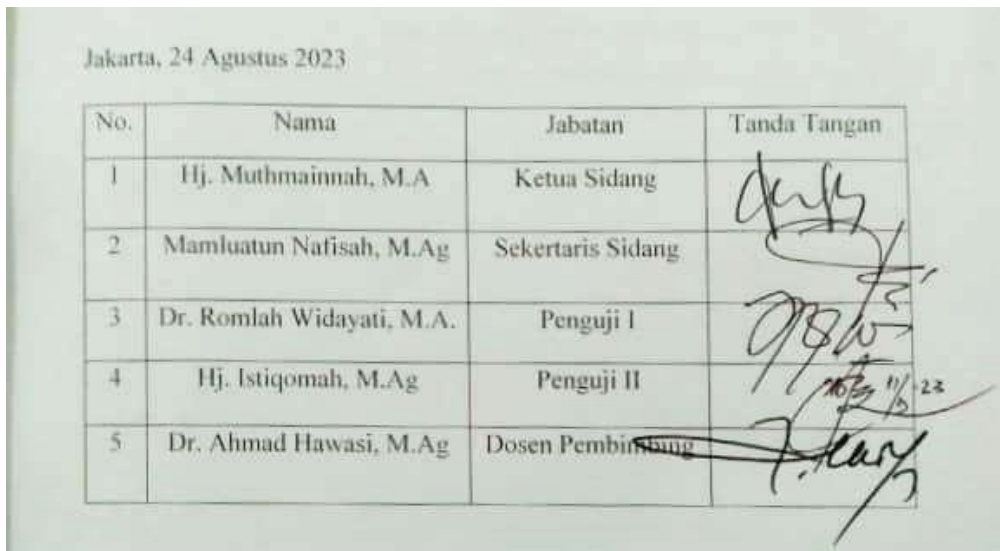 Jakarta, 24 Agustus 2023
No. Nama Jabatan Tanda Tangan
1 Hj. Muthmainnah, M.A Ketua Sidang
2 Mamluatun Nafisah, M.Ag Sekertaris Sidang
3 Dr. Romlah Widayati, M.A. Penguji I
4 Hj. Istiqomah, M.Ag Penguji II
5 Dr. Ahmad Hawasi, M.Ag Dosen Pembimbing